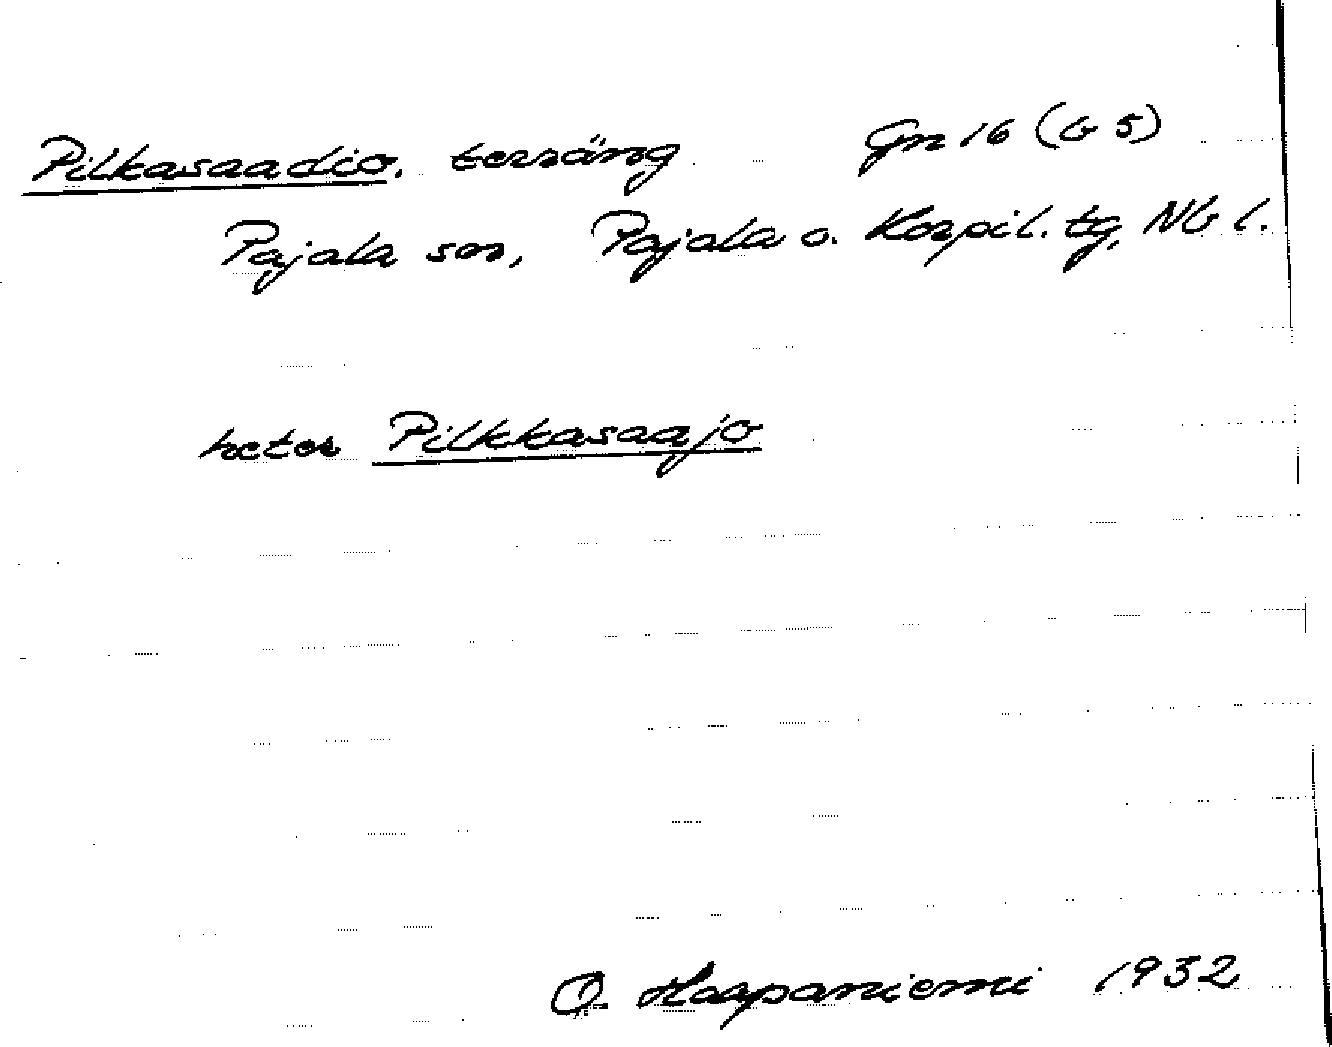 Pilkasaadio. terräng Gn 16 (G 5)
Pajala sn, Pajala o. Korpil. tg, Nb l.
heter Pilkkasaajo
O. Haapaniemi 1932